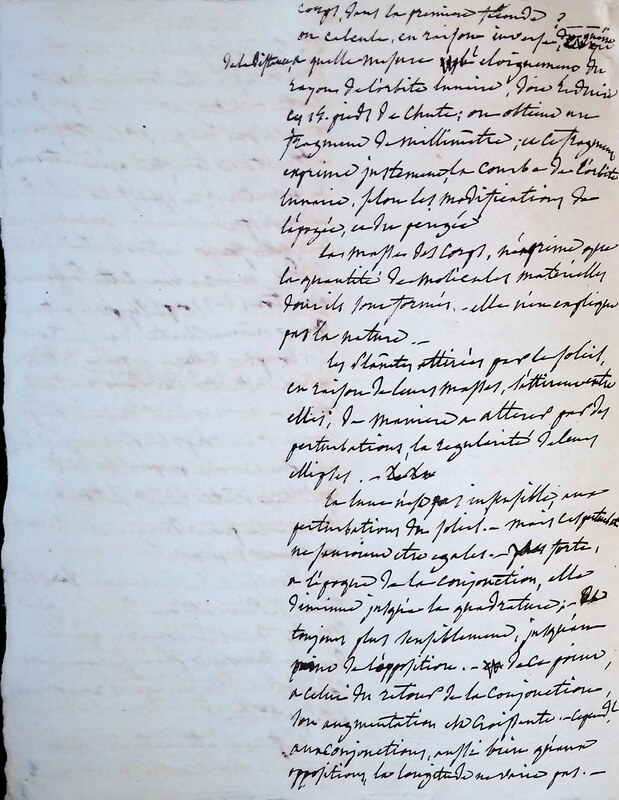 corps, dans la premiere seconde ?
on calcule, en raison inverse, du quarré
de la distance, a quelle mesure l'eloignement du
rayons de l'orbite lunaire, doit reduire
ces 15. pieds de chute ; on obtient un
fragment de millimètre ; et ce fragment
exprime justement, la courbe de l'orbite
lunaire, selon les modifications de
l'apogée, et du perigée
La masse des corps, n'exprime que
la quantité de molécules matérielles
dont ils sont formés. - elle n'en explique
pas la nature. -
les planetes, attirées par le soleil,
en raison de leurs masses, s'attirent entre
elles ; de maniere a alterer par des
perturbations, la regularité de leurs
ellipses. -
La lune n'est pas insensible, aux
perturbations du soleil. - mais ces
ne sauroient etre egales. - plus forte,
a l'époque de la conjonction, elle
diminue jusqu'a la quadrature ; -
toujours plus sensiblement, jusqu'au
de l'opposition. - de ce point,
a celui du retour de la conjonction,
son augmentation est croissante. -
aux conjonctions, aussi bien qu'aux
oppositions, la longitude ne varie pas. -